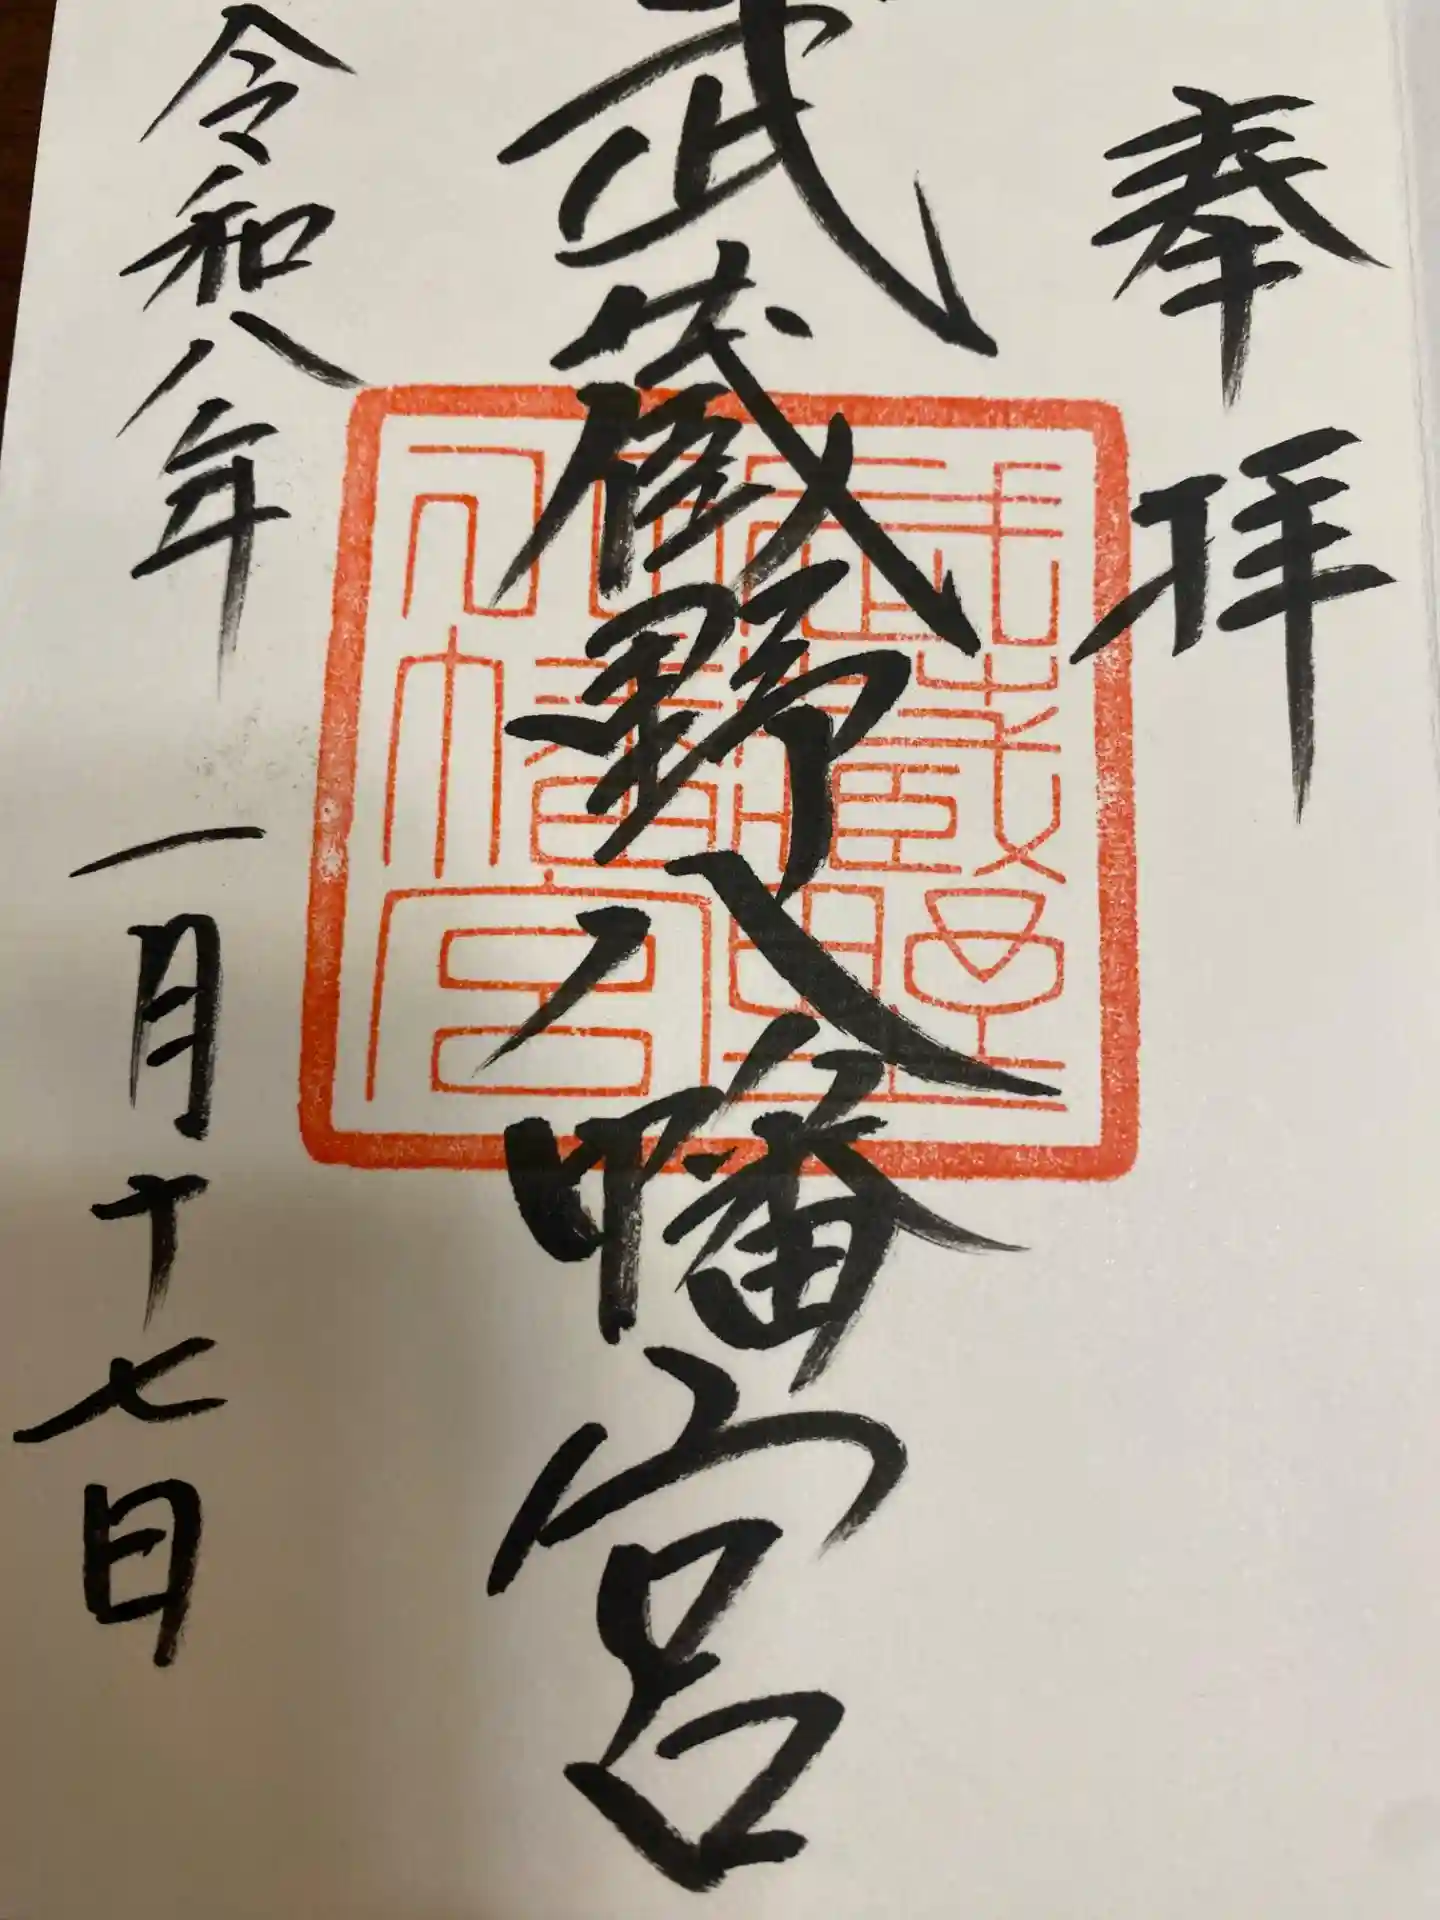 奉拝
武蔵野八幡宮
令和八年 一月十七日
武蔵野
八幡宮